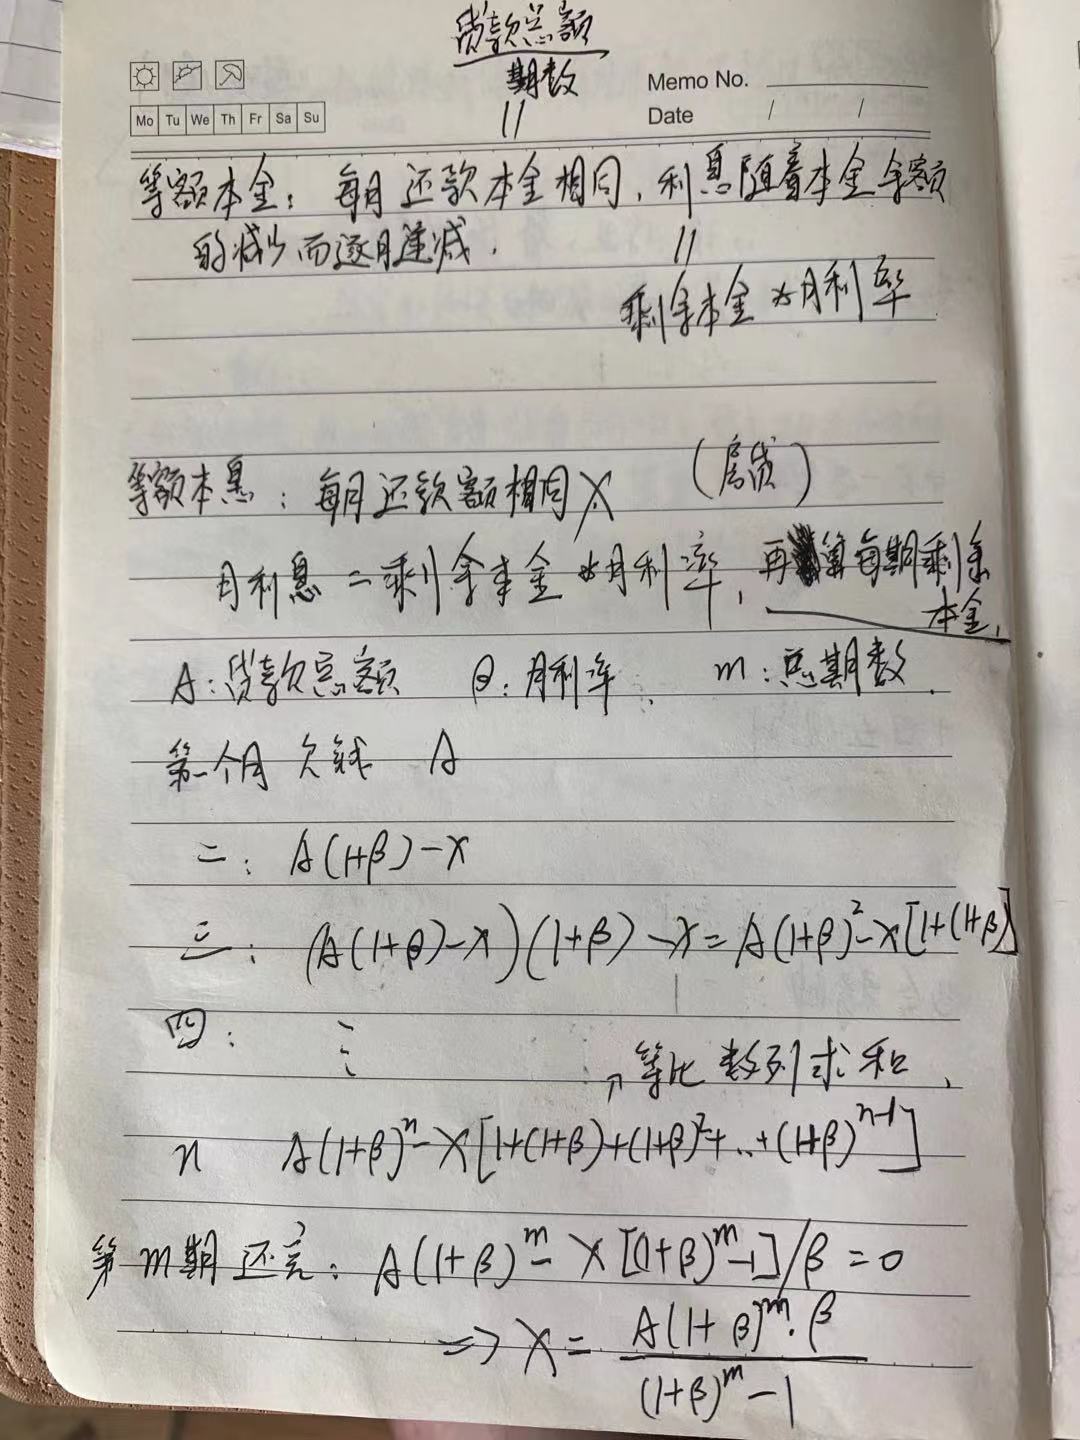 贷款总额
期数
Memo No.
Mo Tu We Th Fr Sa Su
Date / /
等额本金：每月还款本金相同，利息随着本金余额
的减少而逐月递减．
剩余本金*月利率
等额本息：每月还款额相同X （房贷）
月利息=剩余本金*月利率，再算每期剩余
本金，
A：贷款总额 β：月利率． m：总期数．
第一个月 欠钱 A
二： A(1+β)-X
三： (A(1+β)-X)(1+β)-X=A(1+β)²-X[1+(1+β)]
四： ⋮
等比数列求和，
n A(1+β)ⁿ-X[1+(1+β)+(1+β)²+…+(1+β)ⁿ⁻¹]
第m期还完：A(1+β)ᵐ-X[(1+β)ᵐ-1]/β=0
=> X= A(1+β)ᵐ·β
(1+β)ᵐ-1